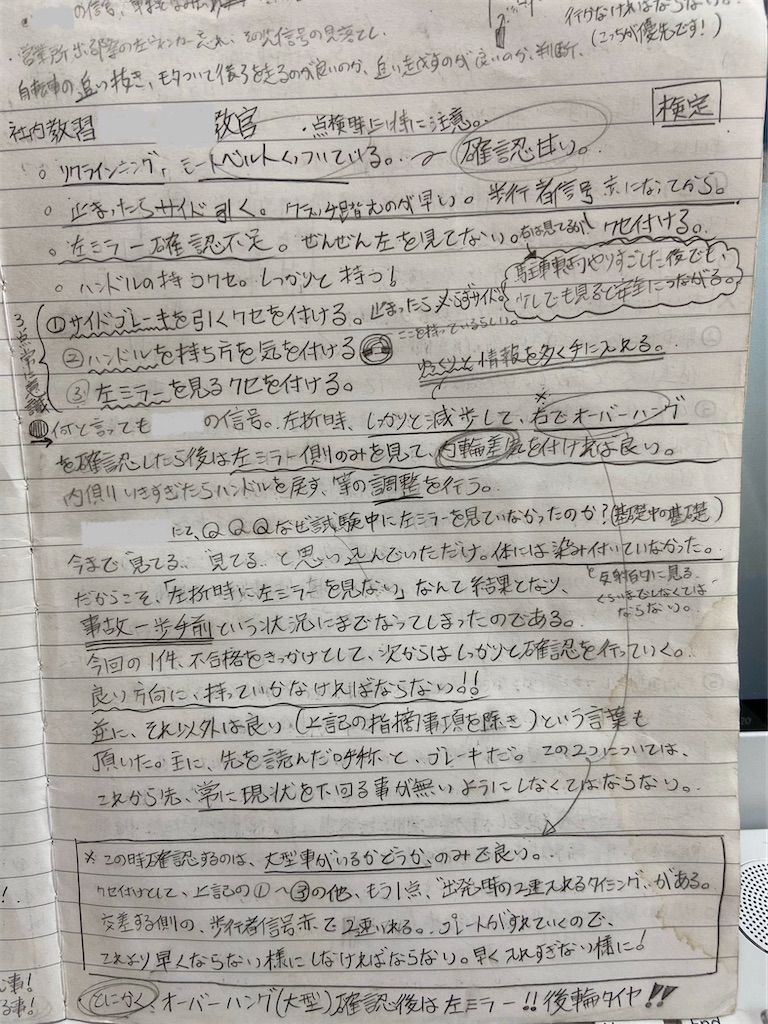 の信号、
行かなければならない。
(こっちが優先です!)
・営業所出る際の左ウィンカー忘れ、その先信号の見落とし
自転車の追い抜き、モタついて後ろを走るのが良いのか、追い越すのが良いのか、判断、
社内教習 教官 ・点検時は特に注意。 検定
○ リクライニング、シートベルトくっついている。 〜 確認甘い。
○ 止まったらサイド引く。クラッチ踏むのが早い。歩行者信号 赤になってから。
○ 左ミラー確認不足。ぜんぜん左を見てない。右は見てるが!クセ付ける。
○ ハンドルの持つクセ。しっかりと持つ!
駐車車両やりすごした後でも、
少しでも見ると安全につながる。
3点常に意識
①サイドブレーキを引くクセを付ける。止まったら必らずサイド。
②ハンドルを持ち方を気を付ける
ここを持っているらしい。
③左ミラーを見るクセを付ける。
ゆっくりと情報を多く手に入れる。
何と言っても の信号。左折時、しっかりと減歩して、右でオーバーハング
※
を確認したら後は左ミラー側のみを見て、内輪差気を付ければ良い。
内側いきすぎたらハンドルを戻す、等の調整を行う。
にて、QQQなぜ試験中に左ミラーを見ていなかったのか?(基礎中の基礎)
今まで"見てる" "見てる"と思い込んでいただけ。体には染み付いていなかった。
と反射的に見る
くらいまでしなくては
ならない。
だからこそ、「左折時に左ミラーを見ない」なんて結果となり、
事故一歩手前という状況にまでなってしまったのである。
今回の1件、不合格をきっかけとして、次からはしっかりと確認を行っていく。
良い方向に、持っていかなければならない!!
並に、それ以外は良い(上記の指摘事項を除き)という言葉も
頂いた。主に、先を読んだ呼称と、ブレーキだ。この2つについては、
これから先、常に現状を下回る事が無いようにしなくてはならない。
※この時確認するのは、大型車がいるかどうか、のみで良い。
クセ付けとして、上記の①〜③の他、もう1点、"出発時の2速入れるタイミング"がある。
交差する側の、歩行者信号赤で2速いれる。プレートがすれていくので、
これより早くならない様にしなければならない。早く入れすぎない様に!
とにかく、オーバーハング(大型)確認後は左ミラー!!後輪タイヤ!!
事!
る事!